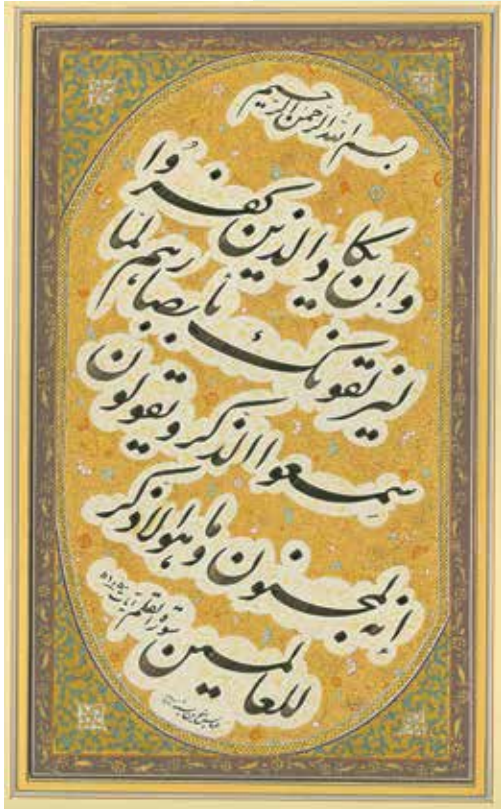 بسم الله الرحمن الرحیم
وإن یکاد الذین کفروا
لیزلقونک بأبصارهم لما
سمعوا الذکر ویقولون
إنه لمجنون وما هو إلا ذکر
للعالمین
سورة القلم آیات